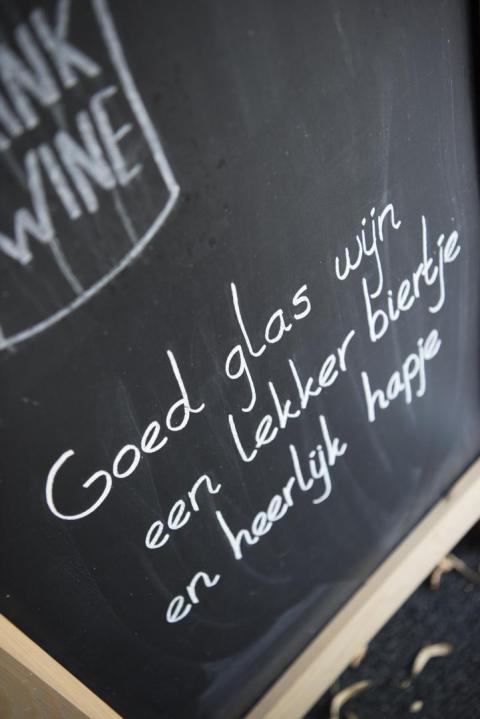 INK
WINE
Goed glas wijn
een lekker biertje
en heerlijk hapje